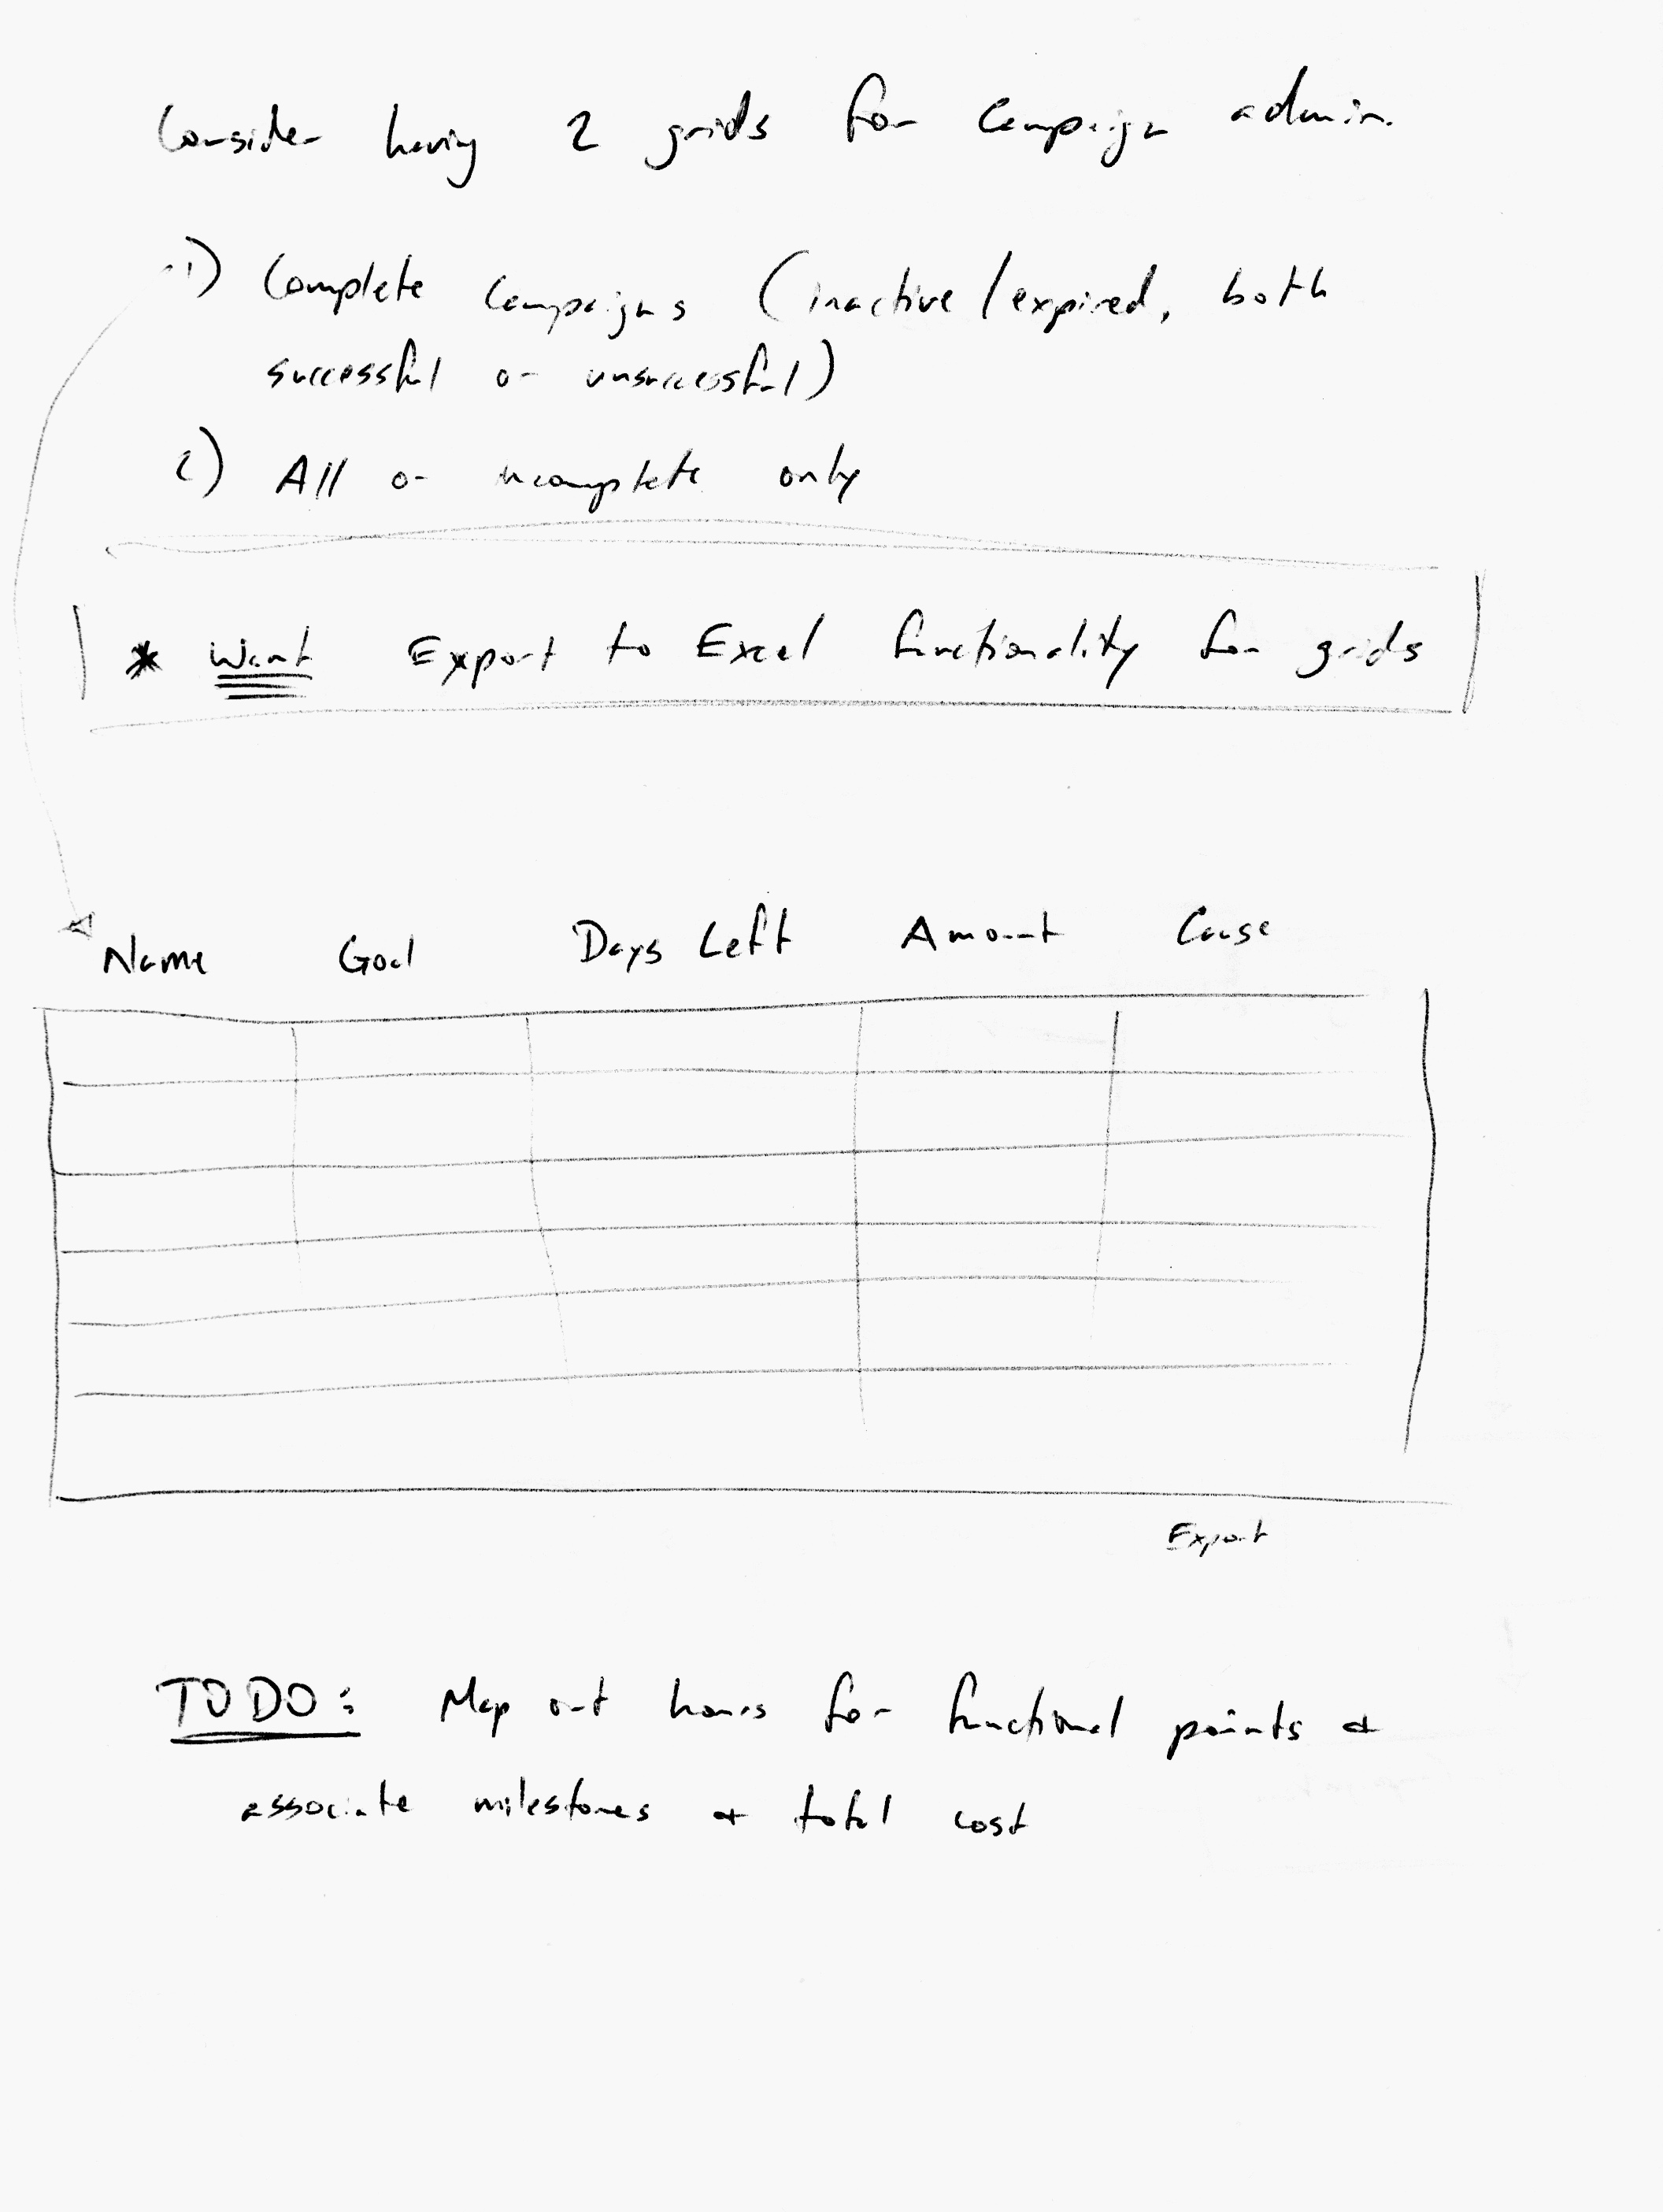 Consider having 2 grids for Campaign admin.
1) Complete Campaigns (inactive/expired, both
successful or unsuccessful)
2) All or incomplete only
* Want Export to Excel functionality for grids
Name Goal Days Left Amount Cause
Export
TODO: Map out hours for functional points &
associate milestones & total cost